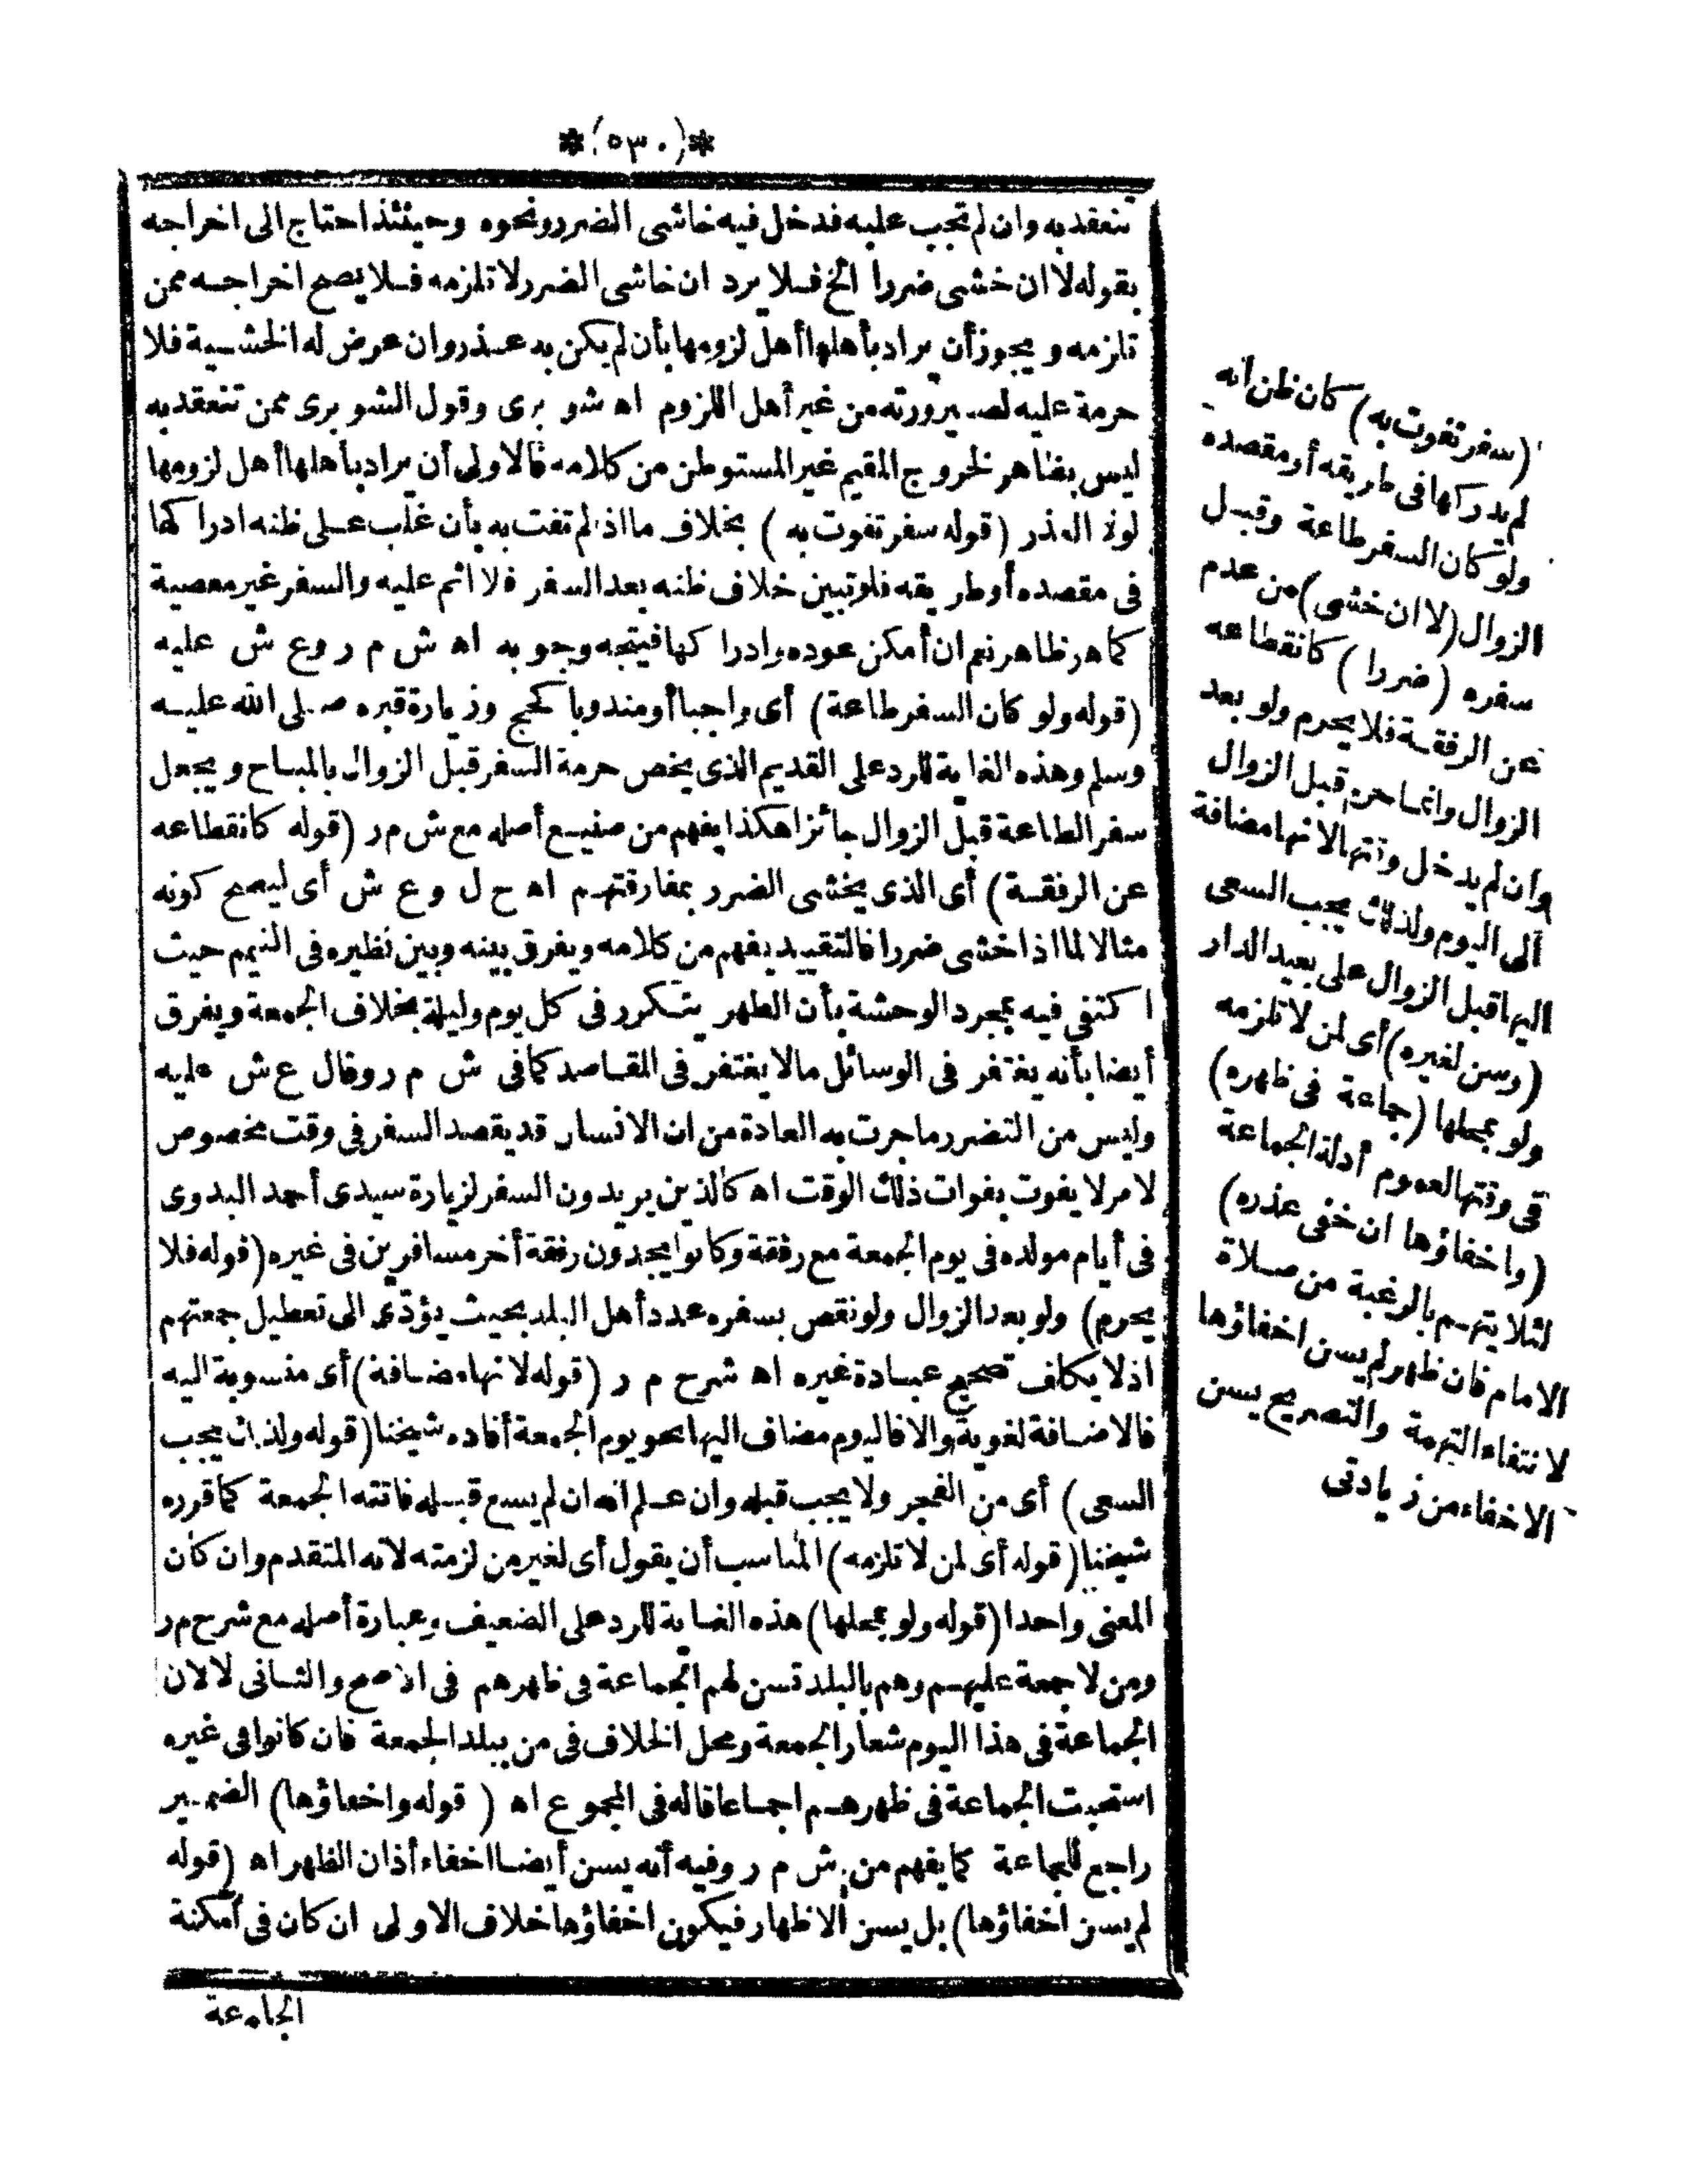 *(٥٣٠)*
تنعقد به وان لم تجب عليه فدخل فيه خاشى الضرر ونحوه وحينئذ احتاج الى اخراجه
بقوله لا ان خشى ضررا الخ فلا يرد ان خاشى الضرر لا تلزمه فلا يصح اخراجه ممن
تلزمه ويجوز أن يراد بأهلها أهل لزومها بأن لم يكن به عذر وان عرض له الخشية فلا
حرمة عليه لصيرورته من غير أهل اللزوم اه شوبرى وقول الشوبرى ممن تنعقد به
ليس بظاهر لخروج المقيم غير المستوطن من كلامه فالاولى أن يراد بأهلها أهل لزومها
لولا العذر (قوله سفر تفوت به) بخلاف ما اذا لم تفت به بأن غلب على ظنه ادراكها
فى مقصده أو طريقه فلو تبين خلاف ظنه بعد السفر فلا اثم عليه والسفر غير معصية
كما هو ظاهر نعم ان أمكن عوده وادراكها فيتجه وجوبه اه ش م ر وع ش عليه
(قوله ولو كان السفر طاعة) أى واجبا أو مندوبا كحج وزيارة قبره صلى الله عليه
وسلم وهذه الغاية للرد على القديم الذى يخص حرمة السفر قبل الزوال بالمباح ويجعل
سفر الطاعة قبل الزوال جائزا هكذا يفهم من صنيع أصله مع ش م ر (قوله كانقطاعه
عن الرفقة) أى الذى يخشى الضرر بمفارقتهم اه ح ل وع ش أى ليصح كونه
مثالا لما اذا خشى ضررا فالتقييد يفهم من كلامه ويفرق بينه وبين نظيره فى التيمم حيث
اكتفى فيه بمجرد الوحشة بأن الطهر يتكرر فى كل يوم وليلة بخلاف الجمعة ويفرق
أيضا بأنه يغتفر فى الوسائل ما لا يغتفر فى المقاصد كما فى ش م ر وقال ع ش عليه
وليس من التضرر ما جرت به العادة من ان الانسان قد يقصد السفر فى وقت مخصوص
لامر لا يفوت بفوات ذلك الوقت اه كالذين يريدون السفر لزيارة سيدى أحمد البدوى
فى أيام مولده فى يوم الجمعة مع رفقة وكانوا يجدون رفقة أخر مسافرين فى غيره (قوله فلا
يحرم) ولو بعد الزوال ولو نقص بسفره عدد أهل البلد بحيث يؤدى الى تعطيل جمعتهم
اذ لا يكلف تصحيح عبادة غيره اه شرح م ر (قوله لانها مضافة) أى منسوبة اليه
فالاضافة لغوية والا فاليوم مضاف اليها نحو يوم الجمعة أفاده شيخنا (قوله ولذلك يجب
السعى) أى من الفجر ولا يجب قبله وان علم انه ان لم يسع قبله فاتته الجمعة كما قرره
شيخنا (قوله أى لمن لا تلزمه) المناسب أن يقول أى لغير من لزمته لانه المتقدم وان كان
المعنى واحدا (قوله ولو بمحلها) هذه الغاية للرد على الضعيف وعبارة أصله مع شرح م ر
ومن لا جمعة عليهم وهم بالبلد تسن لهم الجماعة فى ظهرهم فى الاصح والثانى لا لان
الجماعة فى هذا اليوم شعار الجمعة ومحل الخلاف فى من ببلد الجمعة فان كانوا فى غيره
استحبت الجماعة فى ظهرهم اجماعا قاله فى المجموع اه (قوله واخفاؤها) الضمير
راجع للجماعة كما يفهم من ش م ر وفيه أنه يسن أيضا اخفاء أذان الظهر اه (قوله
لم يسن اخفاؤها) بل يسن الاظهار فيكون اخفاؤها خلاف الاولى ان كان فى أمكنة
الجامعة
(سفر تفوت به) كان ظن انه
لم يدركها فى طريقه أو مقصده
ولو كان السفر طاعة وقبل
الزوال (لا ان خشى) من عدم
سفره (ضررا) كانقطاعه
عن الرفقة فلا يحرم ولو بعد
الزوال وانما حرم قبل الزوال
وان لم يدخل وقتها لانها مضافة
الى اليوم ولذلك يجب السعى
اليها قبل الزوال على بعيد الدار
(وسن لغيره) أى لمن لا تلزمه
ولو بمحلها (جماعة فى ظهره)
فى وقتها لعموم أدلة الجماعة
(واخفاؤها ان خفى عذره)
لئلا يتهم بالرغبة من صلاة
الامام فان ظهر لم يسن اخفاؤها
لانتفاء التهمة والتصريح بسن
الاخفاء من زيادتى